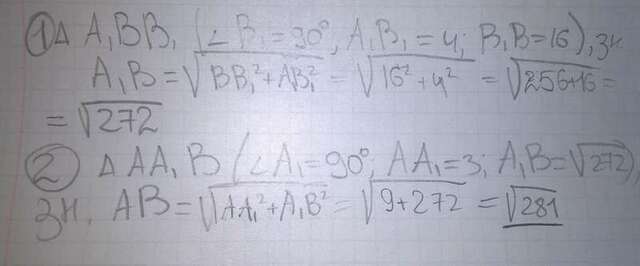 ① Δ A₁BB₁ (∠B₁=90°, A₁B₁=4; B₁B=16), зн.
A₁B=√BB₁²+AB₁² = √16²+4² = √256+16 =
= √272
② Δ AA₁B (∠A₁=90°; AA₁=3; A₁B=√272),
зн. AB=√AA₁²+A₁B² = √9+272 = √281